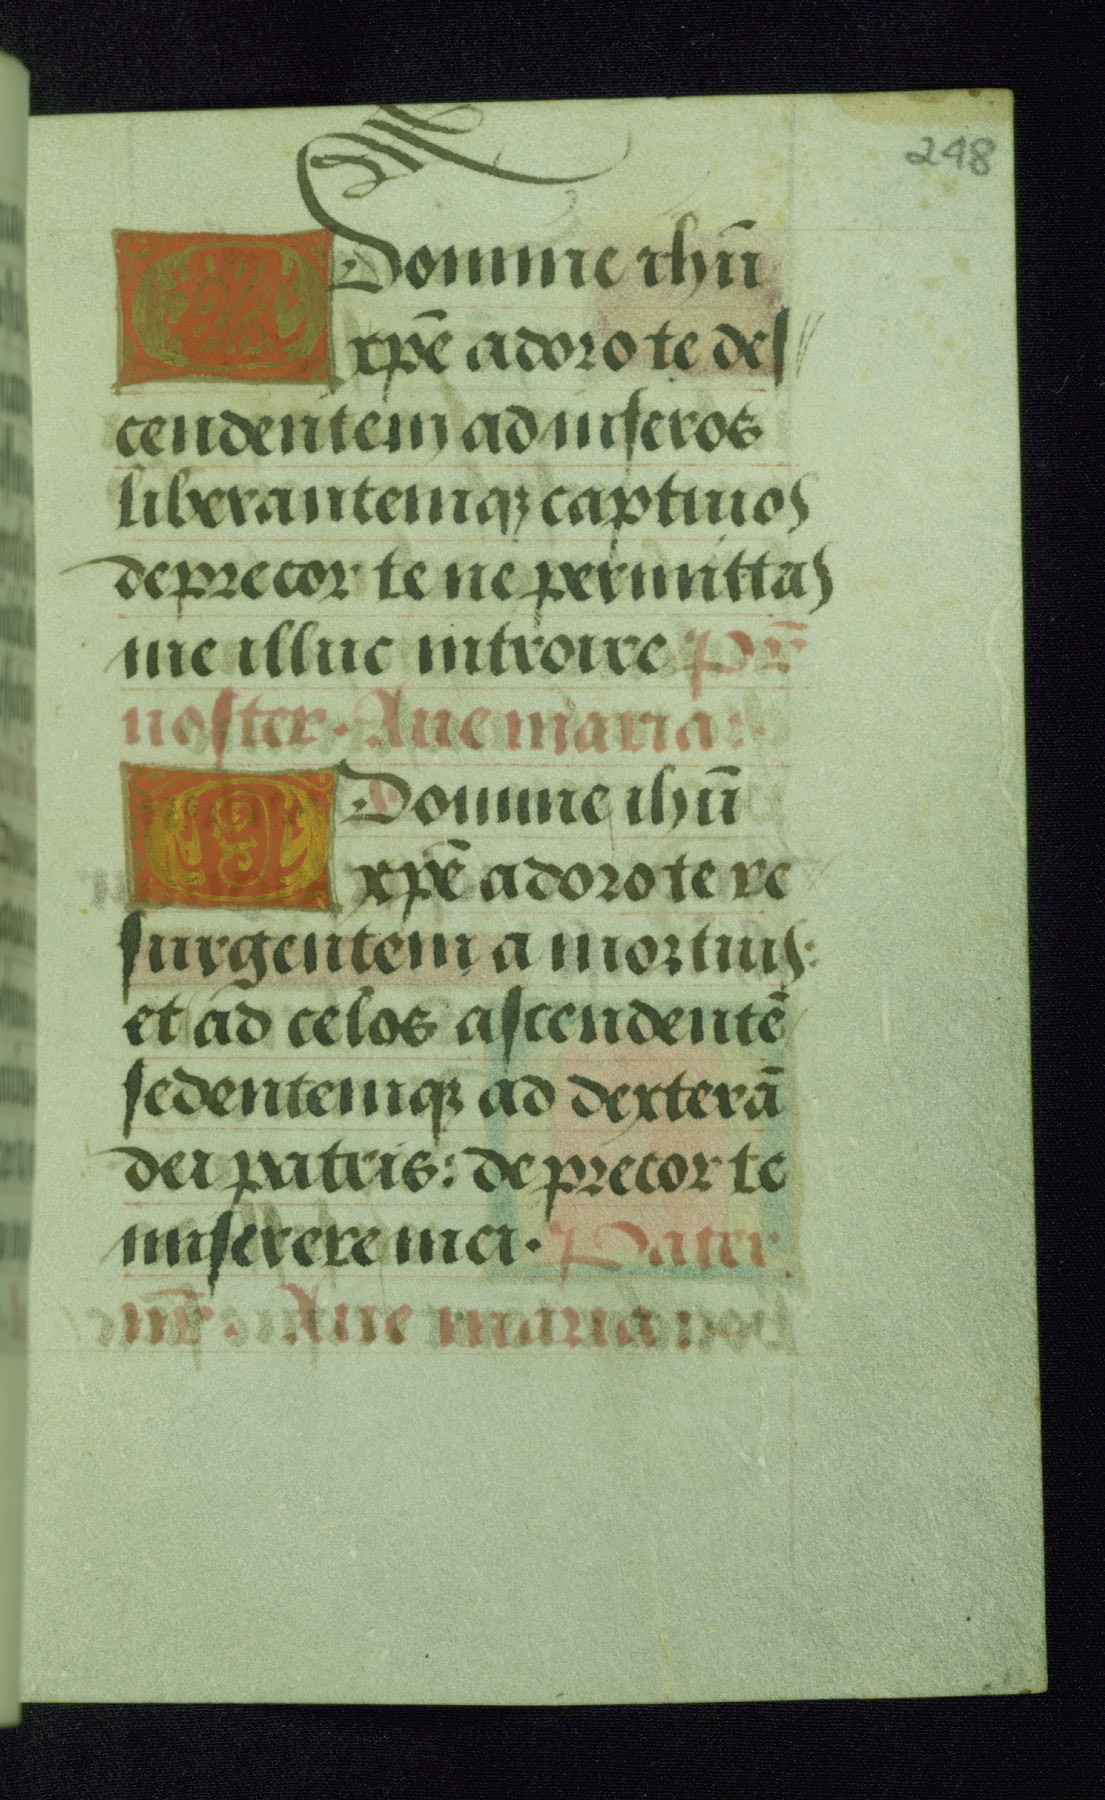 248
O Domine ihū
xpē adoro te des
cendentem ad inferos
liberantemqꝫ captiuos
deprecor te ne permittas
me illuc introire Pr̄
noster. Aue maria:
O Domine ihū
xpē adoro te re
surgentem a mortuis:
et ad celos ascendentē
sedentemqꝫ ad dexterā
dei patris: deprecor te
miserere mei. Pater
nr̄. Aue maria: